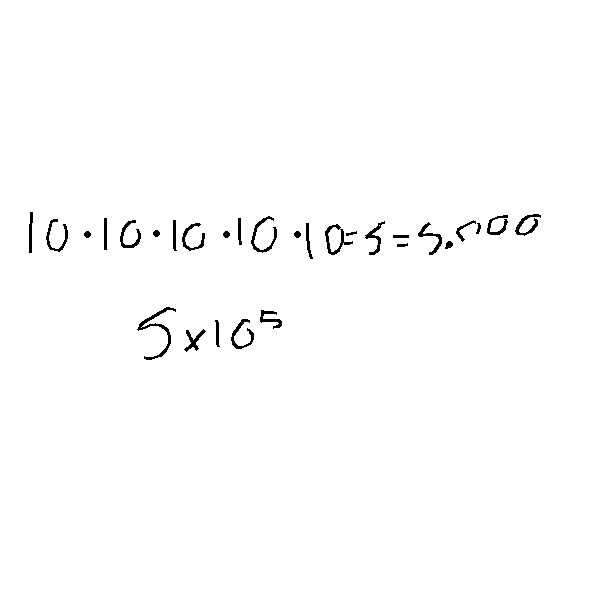 10·10·10·10·10=5=5.000
5x10⁵